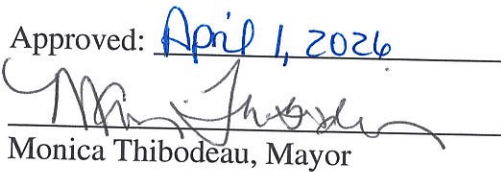 Approved: April 1, 2026
Monica Thibodeau
Monica Thibodeau, Mayor